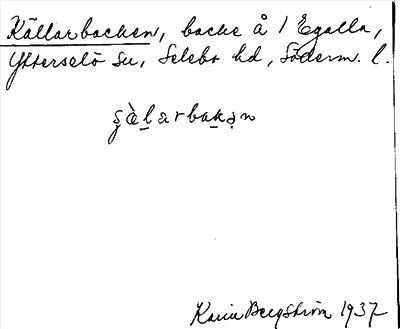 Källarbacken, backe å 1 Egalla,
Ytterselö sn, Selebo hd, Söderm. l.
s̯àḷarbakən
Karin Bergström 1937